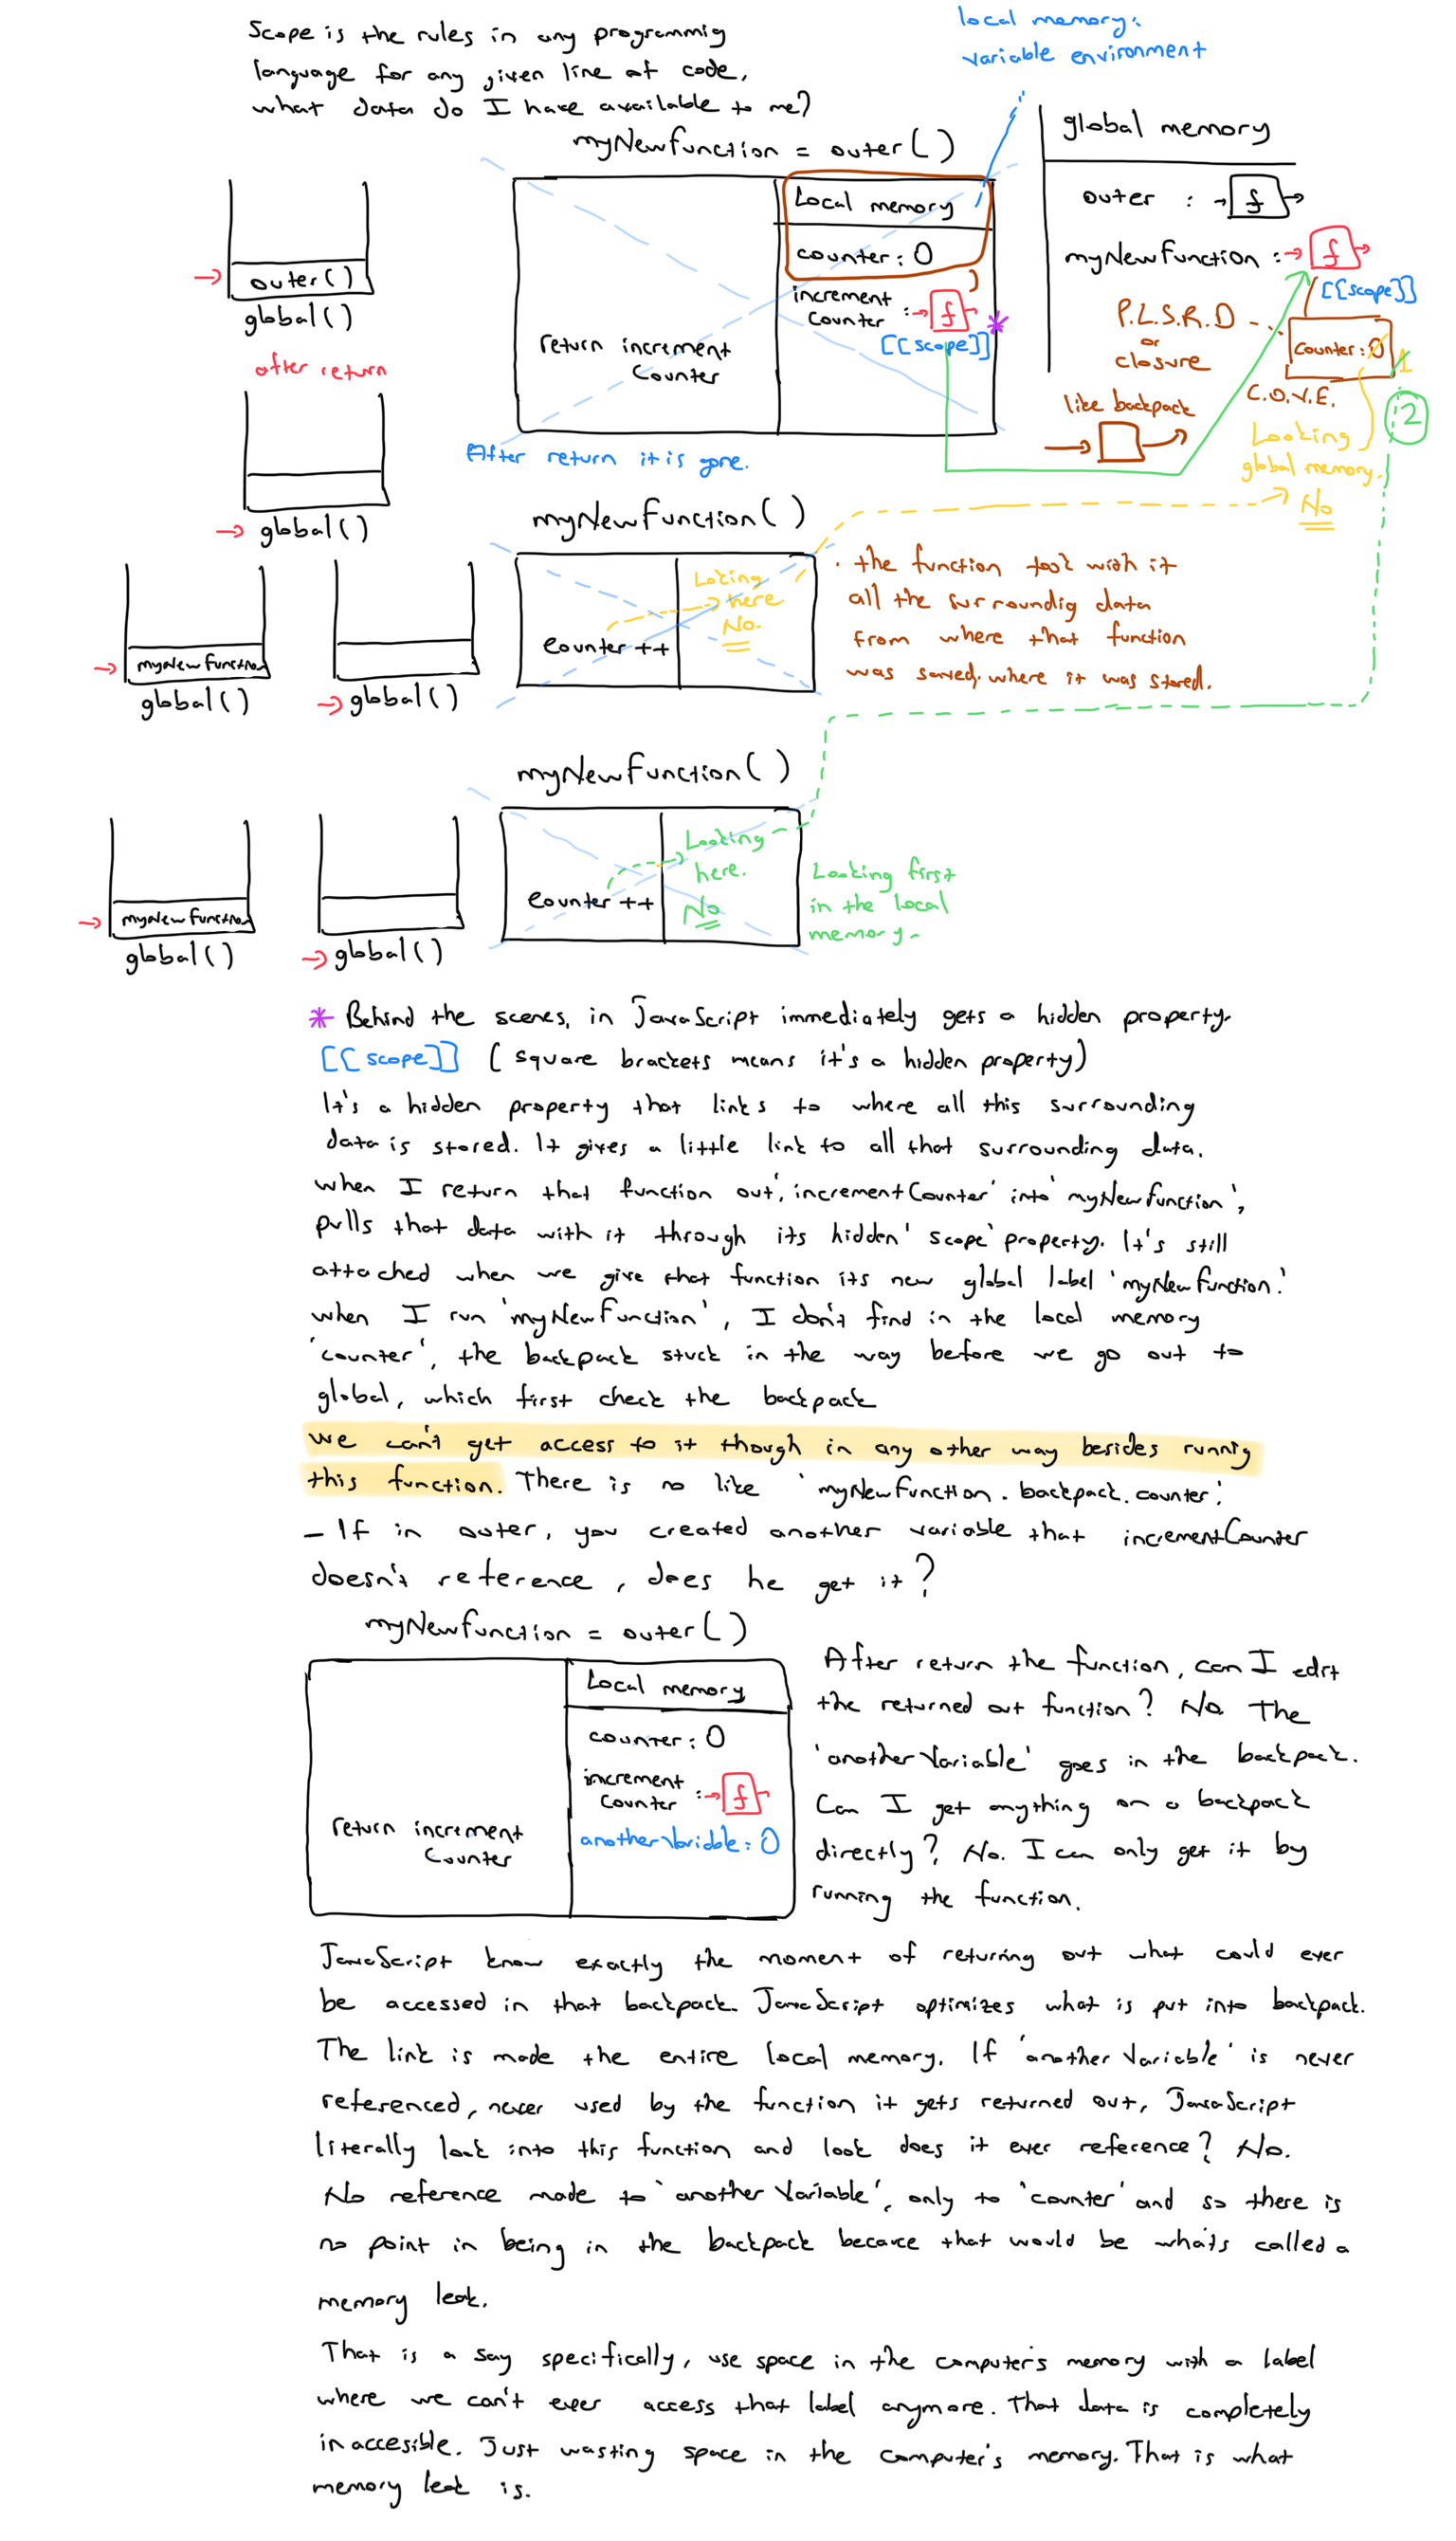 Scope is the rules in any programmig
language for any given line of code,
what data do I have available to me?
local memory:
variable environment
myNewfunction = outer()
Local memory
counter: 0
increment
Counter : f
[[scope]]
return increment
Counter
After return it is gone.
outer()
global()
after return
global()
global memory
outer : f
myNewfunction : f
[[scope]]
P.L.S.R.D
or
closure
Counter: 0
1
2
C.O.V.E.
like backpack
Looking
global memory.
No
myNewfunction()
counter ++
Loking
here
No.
myNewfunction
global()
global()
the function took with it
all the surroundig data
from where that function
was saved, where it was stored.
myNewfunction()
counter ++
Looking
here.
No
Looking first
in the local
memory.
myNewfunction
global()
global()
* Behind the scenes, in JavaScript immediately gets a hidden property.
[[scope]] (square brackets means it's a hidden property)
It's a hidden property that links to where all this surrounding
data is stored. It gives a little link to all that surrounding data.
when I return that function out, 'incrementCounter' into 'myNewfunction',
pulls that data with it through its hidden 'scope' property. It's still
attached when we give that function its new global label 'myNewfunction'.
when I run 'myNewfunction', I don't find in the local memory
'counter', the backpack stuck in the way before we go out to
global, which first check the backpack
we can't get access to it though in any other way besides runnig
this function. There is no like 'myNewfunction.backpack.counter'.
- If in outer, you created another variable that incrementCounter
doesn't reference, does he get it?
myNewfunction = outer()
Local memory
counter: 0
increment
Counter : f
anotherVariable: 0
return increment
Counter
After return the function, can I edit
the returned out function? No. The
'anotherVariable' goes in the backpack.
Can I get anything on a backpack
directly? No. I can only get it by
running the function.
JavaScript know exactly the moment of returning out what could ever
be accessed in that backpack. JavaScript optimizes what is put into backpack.
The link is made the entire local memory. If 'anotherVariable' is never
referenced, never used by the function it gets returned out, JavaScript
literally look into this function and look does it ever reference? No.
No reference made to 'anotherVariable', only to 'counter' and so there is
no point in being in the backpack becauce that would be what's called a
memory leak.
That is a say specifically, use space in the computer's memory with a label
where we can't ever access that label anymore. That data is completely
inaccesible. Just wasting space in the computer's memory. That is what
memory leak is.